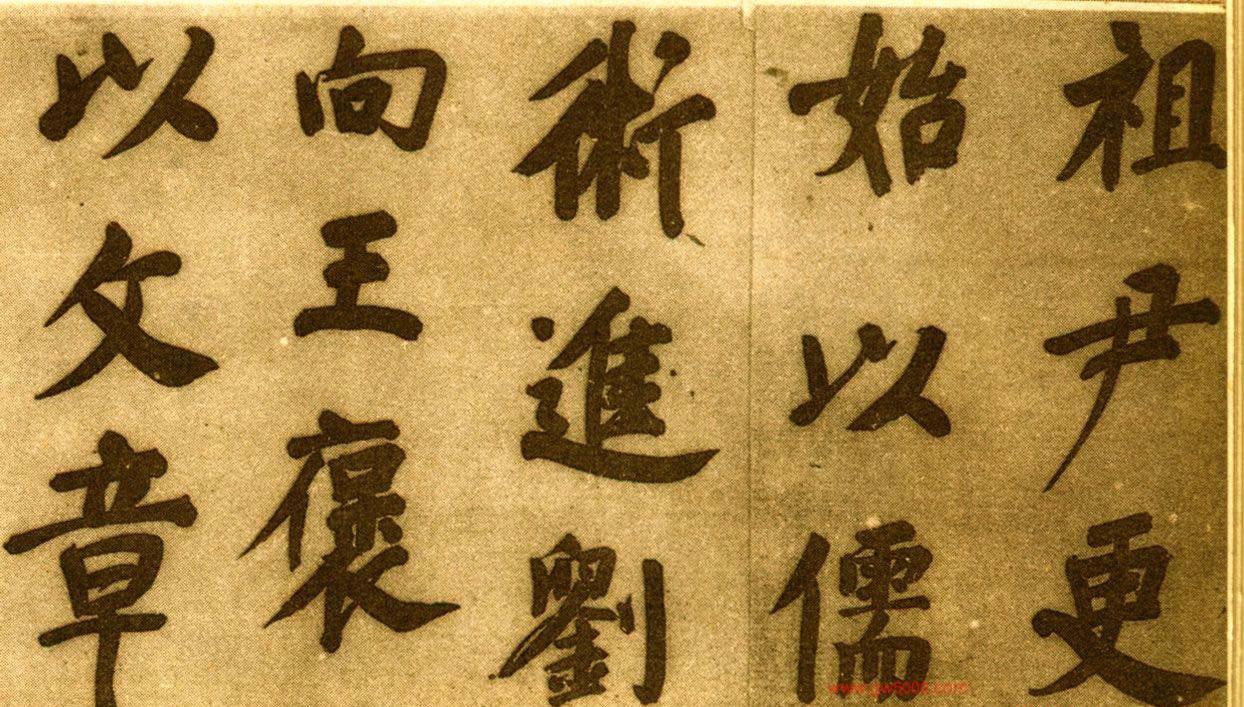 祖尹更
始以儒
術進劉
向王褒
以文章
www.gw5000.com